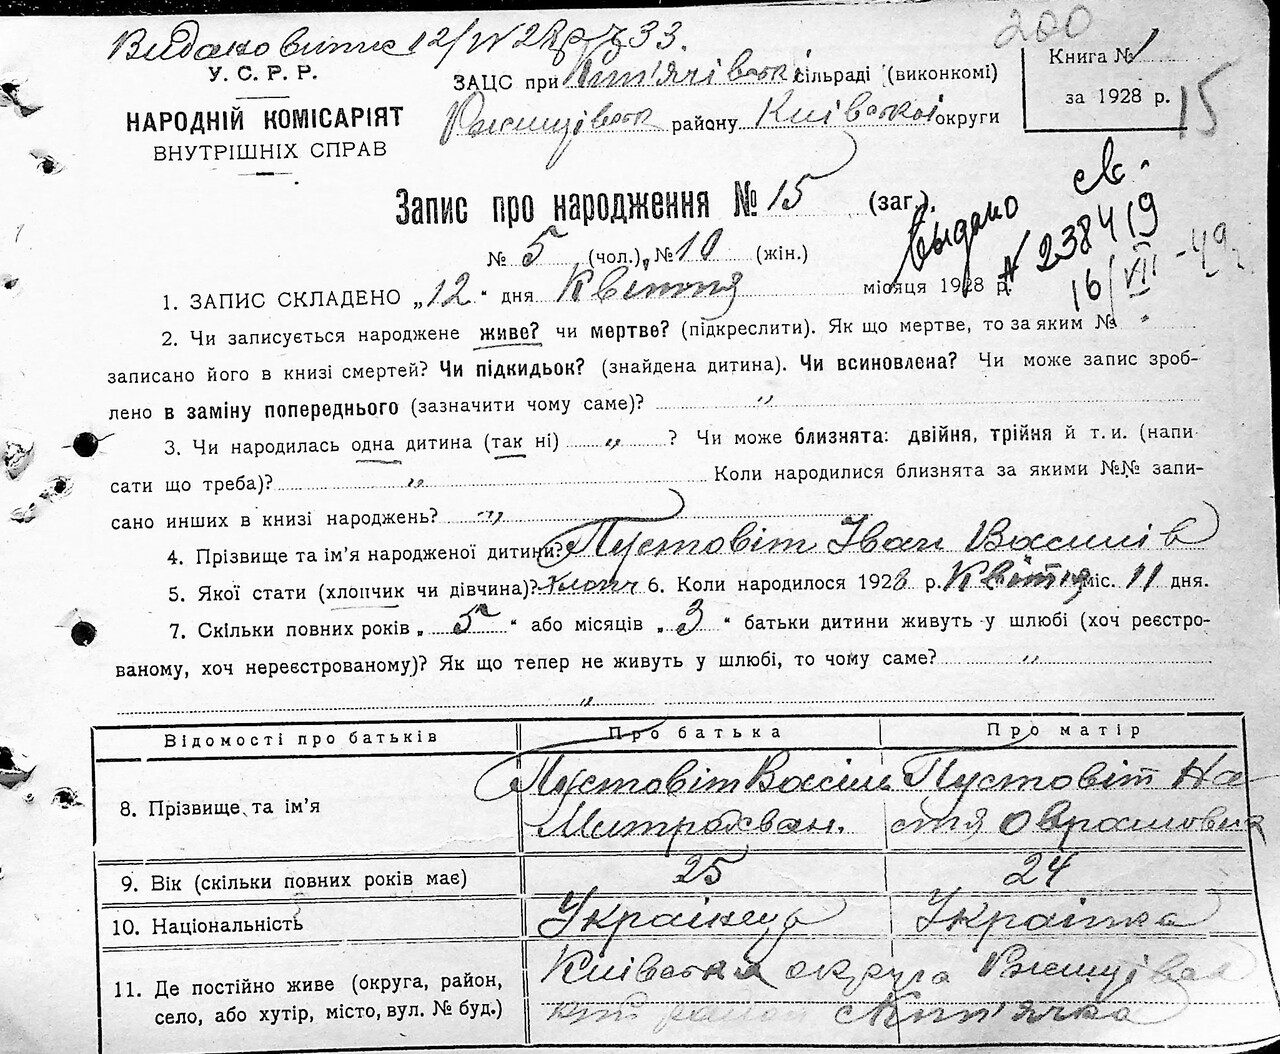 200
Видано витяг 12/IV 28 р. 33.
У. С. Р. Р.
НАРОДНІЙ КОМІСАРІЯТ
ВНУТРІШНІХ СПРАВ
ЗАЦС при Кип'ячівськ. сільраді (виконкомі)
Ржищівськ району Київської округи
Книга № 1
за 1928 р.
15
Запис про народження № 15 (заг.),
№ 5 (чол.), № 10 (жін.)
Выдано св.
N 238419
16/VII-49
1. ЗАПИС СКЛАДЕНО „12" дня Квітня місяця 1928 р.
2. Чи записується народжене живе? чи мертве? (підкреслити). Як що мертве, то за яким № "
записано його в книзі смертей? Чи підкидьок? (знайдена дитина). Чи всиновлена? Чи може запис зроб-
лено в заміну попереднього (зазначити чому саме)? "
3. Чи народилась одна дитина (так ні) " ? Чи може близнята: двійня, трійня й т. и. (напи-
сати що треба)? " Коли народилися близнята за якими №№ запи-
сано инших в книзі народжень? "
4. Прізвище та ім'я народженої дитини? Пустовіт Іван Василів
5. Якої стати (хлопчик чи дівчина)? хлопч 6. Коли народилося 1928 р. Квітня міс. 11 дня.
7. Скільки повних років „ 5 " або місяців „ 3 " батьки дитини живуть у шлюбі (хоч реєстро-
ваному, хоч нереєстрованому)? Як що тепер не живуть у шлюбі, то чому саме? "
"
Відомості про батьків Про батька Про матір
8. Прізвище та ім'я Пустовіт Васіль Митрохван. Пустовіт На стя Оврамовна
9. Вік (скільки повних років має) 25 24
10. Національність Українець Українка
11. Де постійно живе (округа, район, Київська округа Ржищівсь
село, або хутір, місто, вул. № буд.) кий район с Кип'ячка